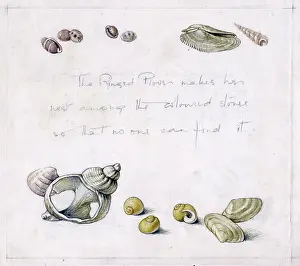 The Ringed Plover makes her
nest among the coloured stones
so that no one can find it.